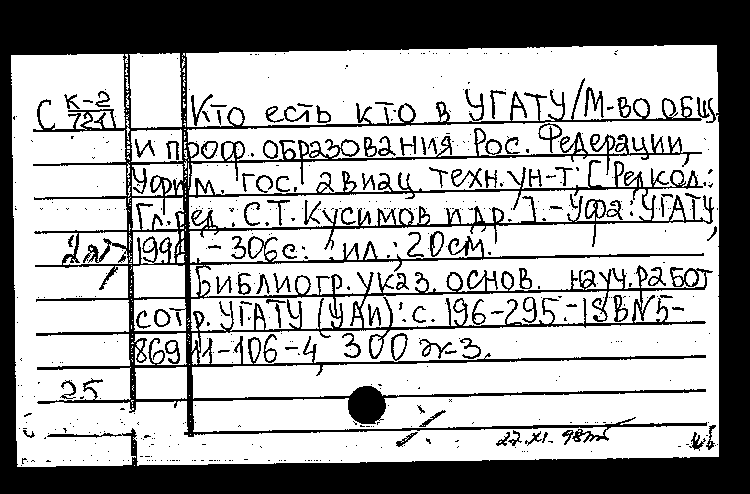 С К-2
7211 Кто есть кто в УГАТУ/М-во общ.
и проф. образования Рос. Федерации,
Уфим. гос. авиац. техн. ун-т; [Редкол.:
Гл. ред.: С.Т. Кусимов и др.]. - Уфа: УГАТУ,
- 306с.: ил.; 20см.
Библиогр. указ. основ. науч. работ
сотр. УГАТУ (УАИ): с. 196-295. - ISBN5-
86911-106-4, 300 экз.
25
27.XI.98